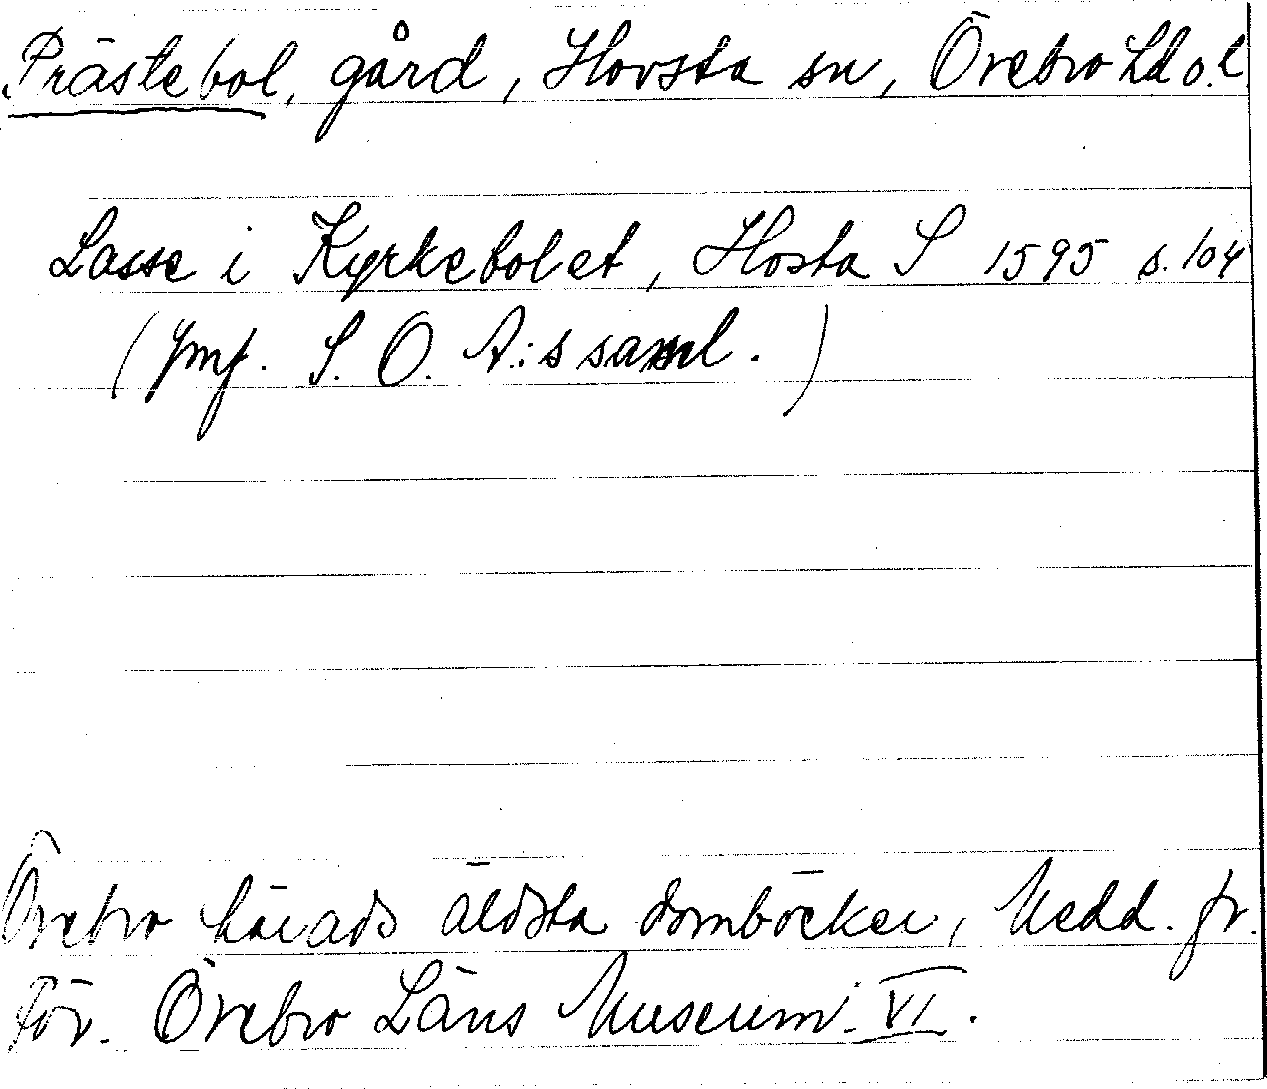 Prästebol, gård, Hovsta sn, Örebro hd o. l
Lasse i Kyrkebolet, Hosta S 1595 s. 104
(Jmf. S. O. A:s saml.)
Örebro härads äldsta domböcker, Medd. fr.
För. Örebro Läns Museum. VI.